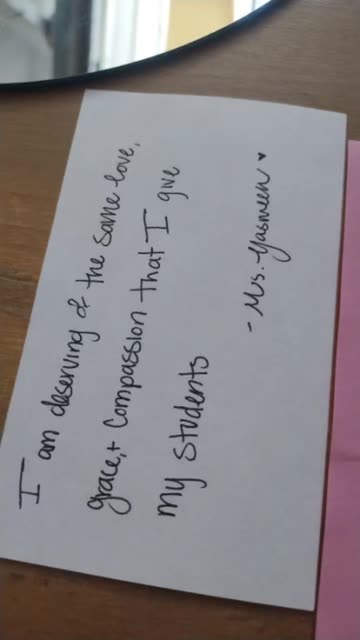 I am deserving of the same love,
grace, + compassion that I give
my students
- Ms. Yasmeen ♥